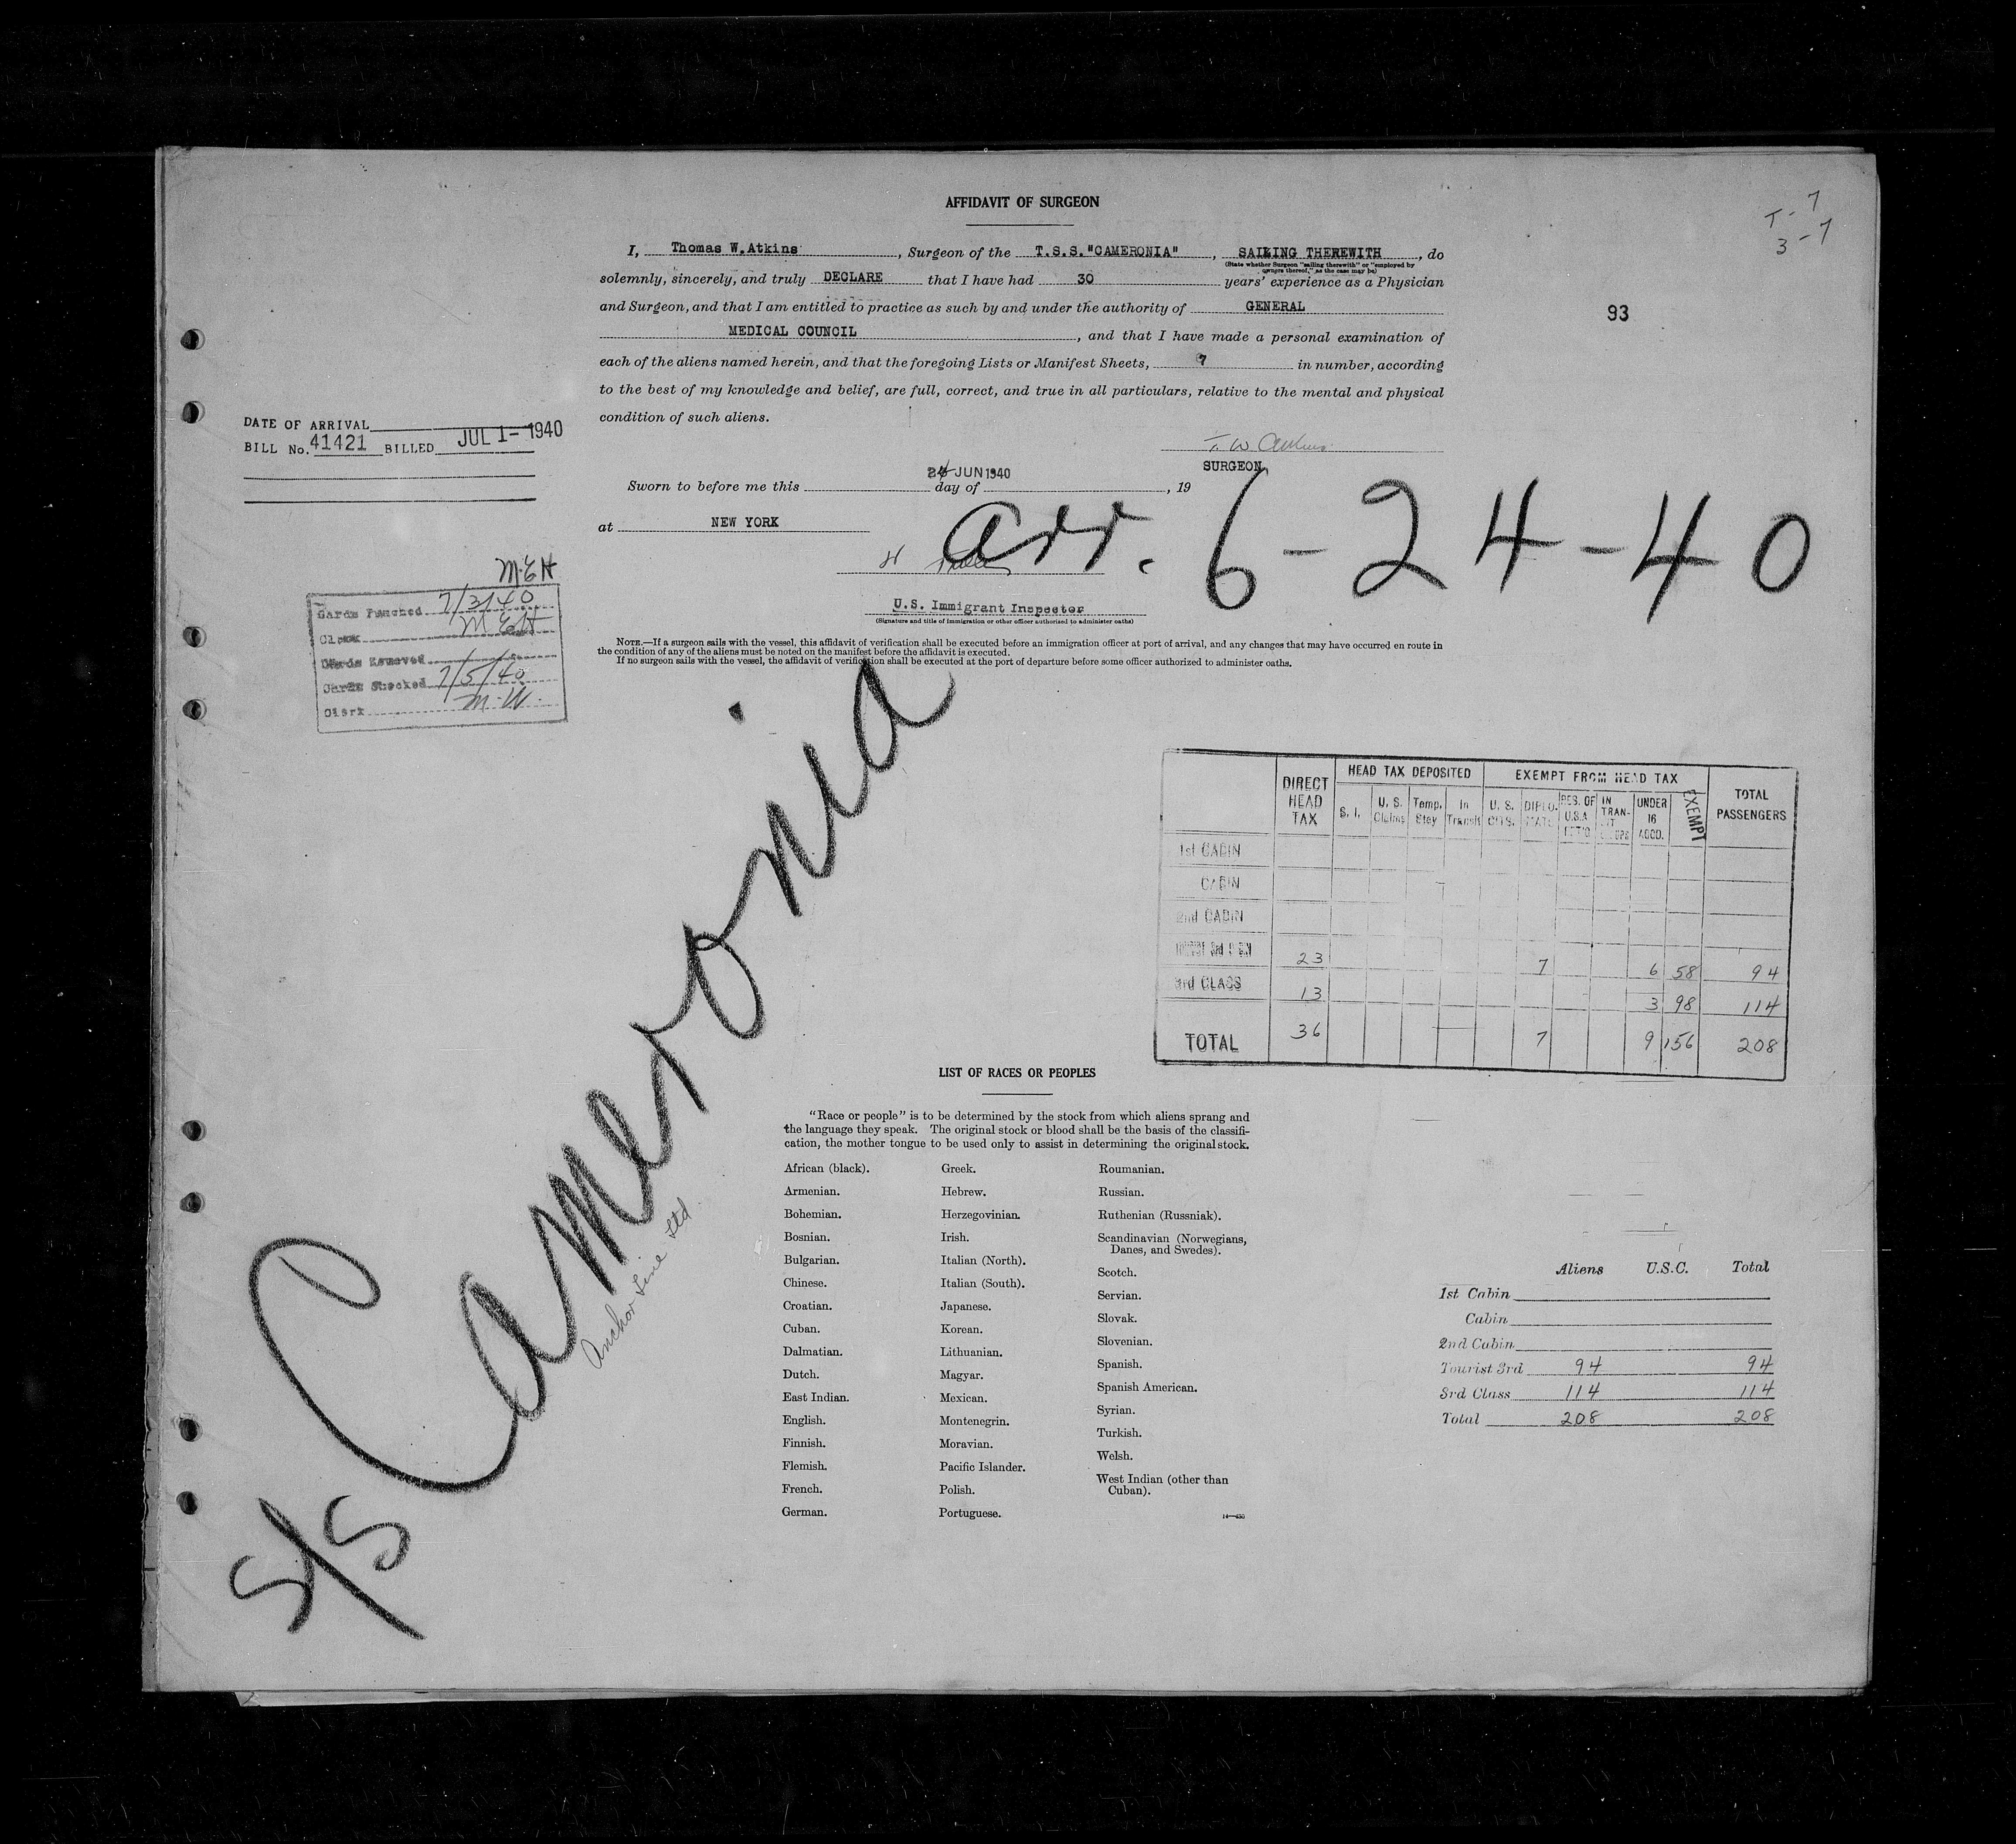 AFFIDAVIT OF SURGEON
T-7
3-7
93
I, Thomas W. Atkins, Surgeon of the T.S.S. "CAMERONIA", SAILING THEREWITH, do
(State whether Surgeon "sailing therewith" or "employed by
owners thereof," as the case may be)
solemnly, sincerely, and truly DECLARE that I have had 30 years' experience as a Physician
and Surgeon, and that I am entitled to practice as such by and under the authority of GENERAL
MEDICAL COUNCIL, and that I have made a personal examination of
each of the aliens named herein, and that the foregoing Lists or Manifest Sheets, 7 in number, according
to the best of my knowledge and belief, are full, correct, and true in all particulars, relative to the mental and physical
condition of such aliens.
T. W. Atkins
SURGEON
DATE OF ARRIVAL
BILL No. 41421 BILLED JUL 1- 1940
24 JUN 1940
Sworn to before me this day of , 19
at NEW YORK
Arr. 6-24-40
U.S. Immigrant Inspector
(Signature and title of immigration or other officer authorized to administer oaths)
NOTE.—If a surgeon sails with the vessel, this affidavit of verification shall be executed before an immigration officer at port of arrival, and any changes that may have occurred en route in
the condition of any of the aliens must be noted on the manifest before the affidavit is executed.
If no surgeon sails with the vessel, the affidavit of verification shall be executed at the port of departure before some officer authorized to administer oaths.
M.E.H
Cards Punched 7/3/40
Clerk M E H
Cards Removed
Cards Checked 7/5/40
Clerk M.W.
S/S Cameronia
Anchor Line Ltd.
DIRECT HEAD TAX
HEAD TAX DEPOSITED
EXEMPT FROM HEAD TAX
TOTAL PASSENGERS
S. I. U. S. Claims Temp. Stay In Transit U. S. CITS. DIPLO- MATS RES. OF U.S.A IN TRAN- UNDER 16 ACCD. EXEMPT
1st CABIN
CABIN
2nd CABIN
TOURIST 3rd CABIN 23 7 6 58 94
3rd CLASS 13 3 98 114
TOTAL 36 7 9 156 208
LIST OF RACES OR PEOPLES
"Race or people" is to be determined by the stock from which aliens sprang and
the language they speak. The original stock or blood shall be the basis of the classifi-
cation, the mother tongue to be used only to assist in determining the original stock.
African (black).
Armenian.
Bohemian.
Bosnian.
Bulgarian.
Chinese.
Croatian.
Cuban.
Dalmatian.
Dutch.
East Indian.
English.
Finnish.
Flemish.
French.
German.
Greek.
Hebrew.
Herzegovinian.
Irish.
Italian (North).
Italian (South).
Japanese.
Korean.
Lithuanian.
Magyar.
Mexican.
Montenegrin.
Moravian.
Pacific Islander.
Polish.
Portuguese.
Roumanian.
Russian.
Ruthenian (Russniak).
Scandinavian (Norwegians,
Danes, and Swedes).
Scotch.
Servian.
Slovak.
Slovenian.
Spanish.
Spanish American.
Syrian.
Turkish.
Welsh.
West Indian (other than
Cuban).
Aliens U.S.C. Total
1st Cabin
Cabin
2nd Cabin
Tourist 3rd 94 94
3rd Class 114 114
Total 208 208